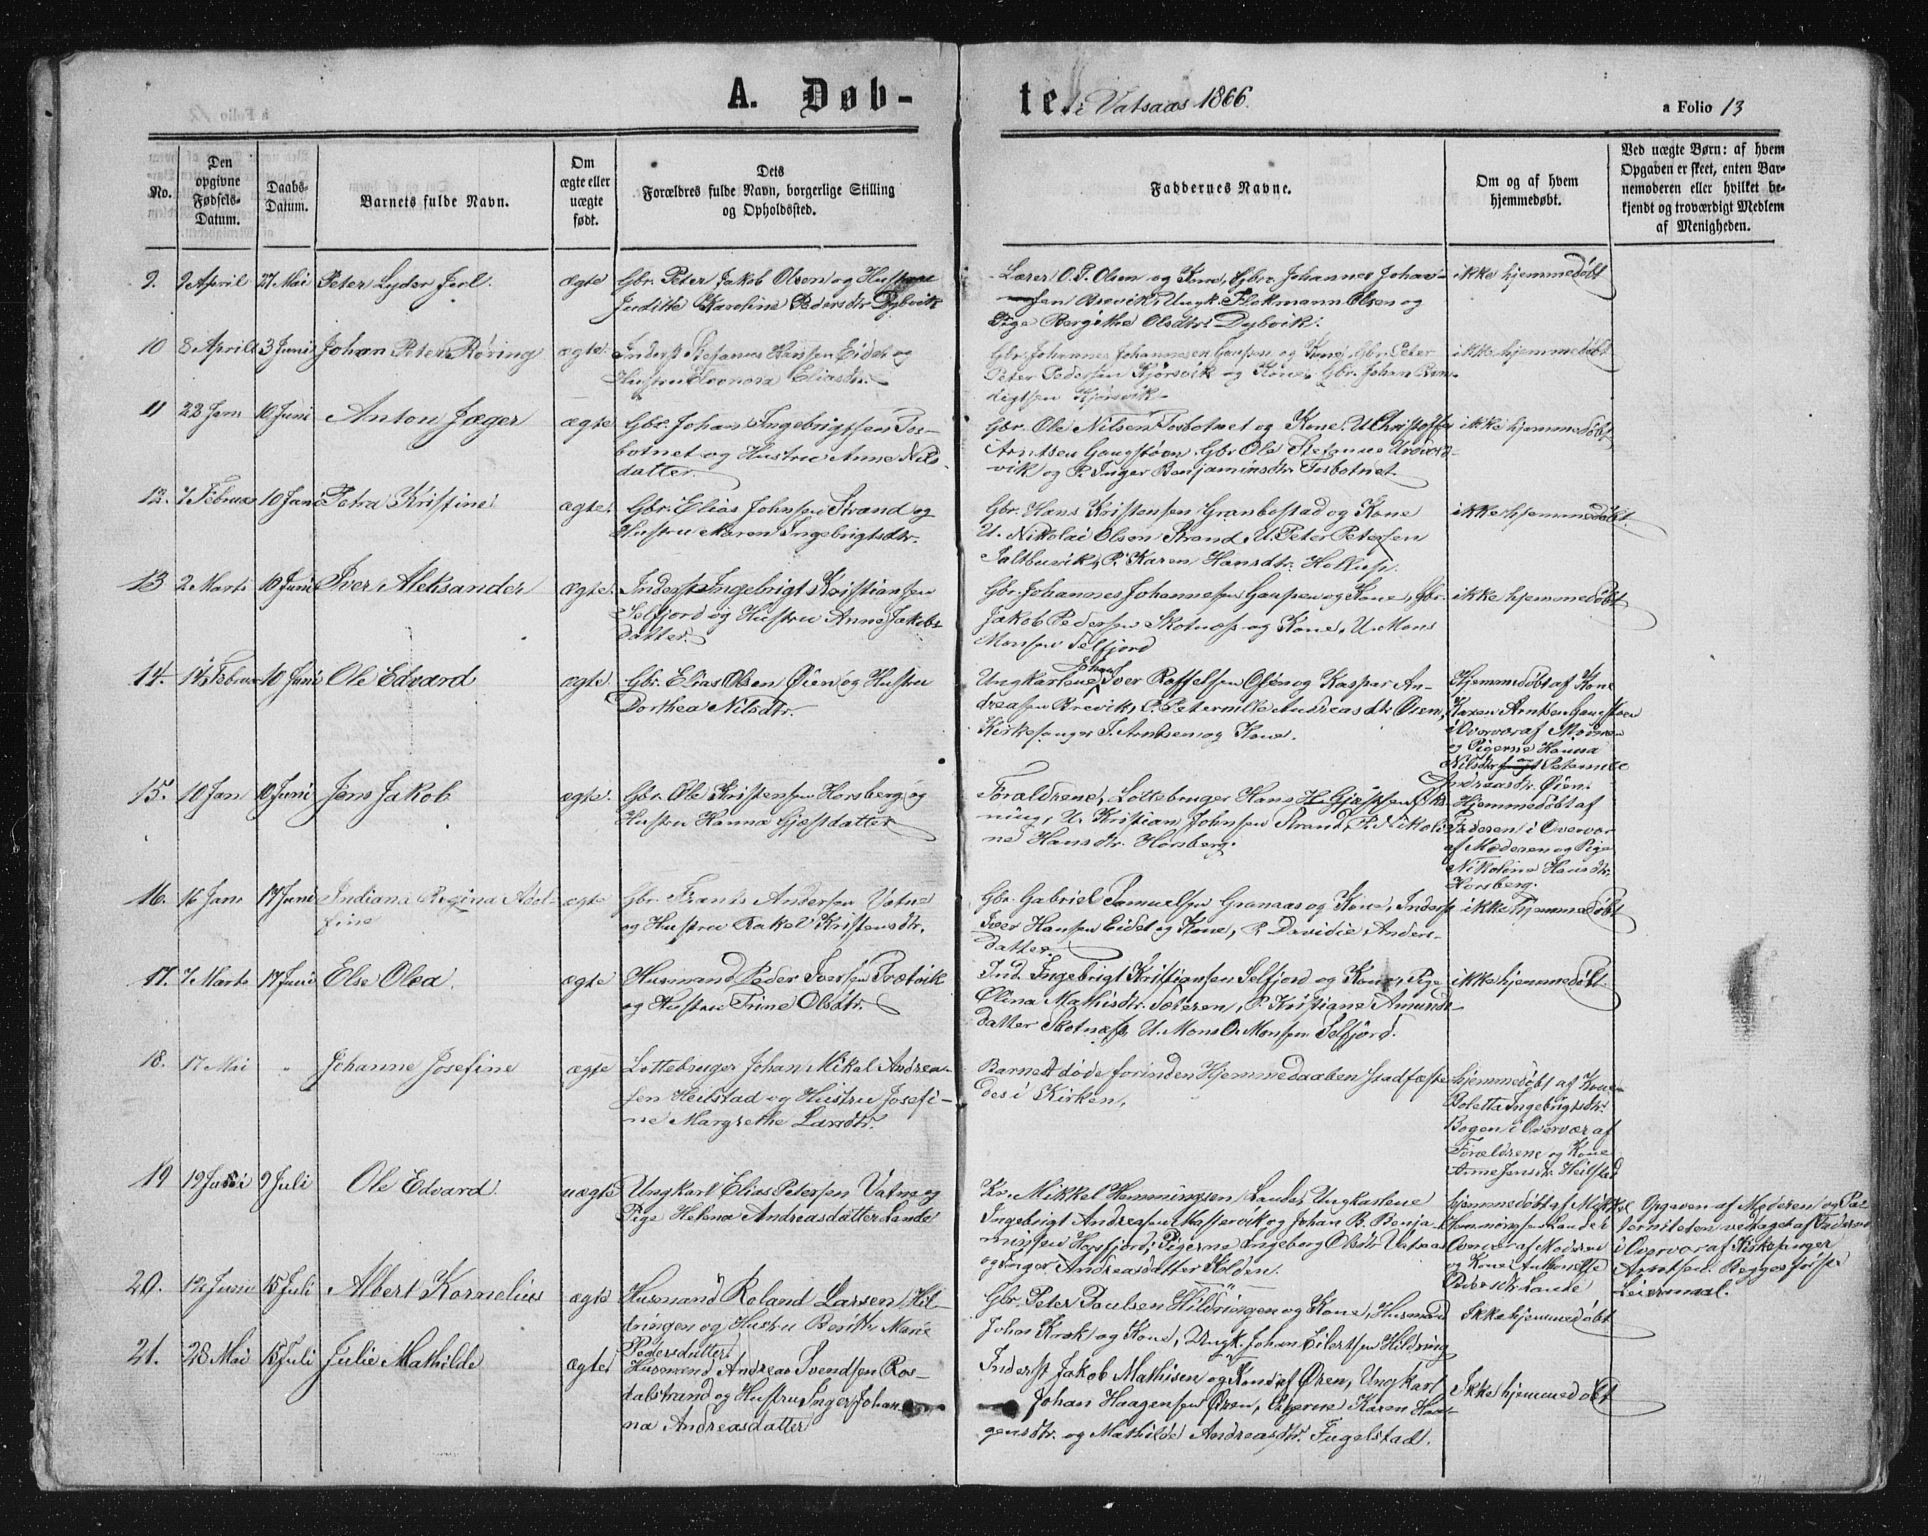 A. Døb-
te i Vatsaas 1866.
a Folio 13
No.
Den opgivne Fødsels-Datum.
Daabs-Datum.
Barnets fulde Navn.
Om ægte eller uægte født.
Dets
Forældres fulde Navn, borgerlige Stilling
og Opholdssted.
Faddernes Navne.
Om og af hvem
hjemmedøbt.
Ved uægte Børn: af hvem
Opgaven er skeet, enten Bar-
nemoderen eller hvilket be-
kjendt og troværdigt Medlem
af Menigheden.
9. 9 April 27 Mai Peter Lyder Jerl. ægte
Gbr. Peter Jakob Olsen og Hustrue
Judithe Karoline Pedersdtr. Dybvik
Lærer O. P. Olsen og Kone, Gbr. Johannes Johan-
sen Ursvik, Ungk. Flokmann Olsen og
Pige Bergithe Olsdtr. Dybvik.
ikke hjemmedøbt
10 8 April 3 Juni Johan Peter Røring ægte
Inderst Stefanus Hansen Eidet og
Hustru Eleonora Eliasdtr.
Gbr. Johannes Johannesen Gaupen og Kone, Gbr. Peter
Peter Pedersen Kjørsvik og Kone, Gbr. Johan Ben-
digtsen Kjørsvik
ikke hjemmedøbt
11 23 Jan 10 Juni Anton Jæger ægte
Gbr. Johan Ingebrigtsen Tos-
botnet og Hustru Anne Nils-
datter.
Gbr. Ole Nilsen Tosbotnet og Kone, U. Christoffer
Arntsen Gaugstøen, Gbr. Ole Stefanus Urdvoz-
vik og P. Inger Benjaminsdtr. Tosbotnet
ikke hjemmedøbt
12. 7 Februar 10 Juni Petra Kristine ægte.
Gbr. Elias Johnsen Strand og
Hustru Maren Ingebrigtsdtr.
Gbr. Hans Kristensen Granbostad og Kone
U. Nikolai Olsen Strand, U. Peter Petersen
Saltbuvik, P. Karen Hansdtr. Hollup.
ikke hjemmedøbt.
13 2 Marts 10 Juni Iver Aleksander ægte.
Inderst Ingebrigt Kristiansen
Selfjord og Hustru Anne Jakobs-
datter.
Gbr. Johannes Johannesen Gaupen og Kone, Gbr.
Jakob Pedersen Skotnæs og Kone, U. Mons
Monsen Selfjord
ikke hjemmedøbt
14. 14 Februar 10 Juni Ole Edvard ægte.
Gbr. Elias Olsen Øien og Hustru
Dorthea Nilsdtr.
Ungkarlene Iver Raffelsen Osen og Kaspar An-
dreasen Brevik, P. Peternille Andreasdtr. Øien,
Kirkesanger S. Arntsen og Kone.
Hjemmedøbt af Kone
Karen Arntsen Gaustøen
i Overvær af Moderen
og Pigerne Hanna
Nilsdtr. og Peternille
Andreasdtr. Øien.
15. 10 Jan 10 Juni Jens Jakob ægte.
Gbr. Ole Kristensen Horsberg og
Hustru Hanna Gjæstdatter
Forældrene, Lottebruger Hans H. Gjæstsen Øks-
ning, U. Kristian Johnsen Strand, P. Nikoli-
ne Hansdtr. Horsberg.
Hjemmedøbt af
Faderen i Overvær
af Moderen og Pige
Nikoline Hansdtr.
Horsberg.
16. 16 Jan 17 Juni Indiana Regina Adol-
fine ægte
Gbr. Frants Andersen Vatne
og Hustru Rakel Kristensdtr.
Gbr. Gabriel Samuelsen Granaas og Kone, Inderst
Iver Hansen Eidet og Kone, P. Davidie Anders-
datter
ikke hjemmedøbt
17. 7 Marts 17 Juni Else Olea. ægte
Husmand Peder Iversen Trætvik
og Hustru Trine Olsdtr.
Ind. Ingebrigt Kristiansen Selfjord og Kone, Pige
Olina Mathisdtr. Sæteren, P. Kristiane Amunds-
datter Skotnæs, U. Mons O. Monsen Selfjord.
ikke hjemmedøbt.
18. 17 Mai " Johanne Josefine ægte
Lottebruger Johan Mikal Andrea-
sen Heilstad og Hustru Josefi-
ne Margrethe Larsdtr.
Barnet døde forinden Hjemmedaaben stadfæste-
des i Kirken,
Hjemmedøbt af Kone
Boletta Ingebrigtsdtr.
Bogen i Overvær af
Forældrene og Kone
Anne Jensdtr. Heilstad
19 19 Juni 9 Juli Ole Edvard uægte
Ungkarl Elias Petersen Vatne og
Pige Helena Andreasdatter Lande
Kr. Mikkel Hemmingsen Lande, Ungkarlene
Ingebrigt Andreasen Kaffervik og Johan B. Benja-
minsen Horsfjord, Pigerne Ingeborg Olsdtr. Vatsaas
og Inger Andreasdatter Holden.
Hjemmedøbt af Mikkel
Hemmingsen Lande i
Overvær af Moderen
og Kone Anthonette
Pedersdtr. Lande
Opgaven af Moderen og Pa-
terniteten vedtaget af Faderen
i Overvær af Kirkesanger
Arntsen. Begges første
Leiermaal.
20. 12 Juni 15 Juli Albert Kornelius ægte
Husmand Roland Larsen Hil-
dringen og Hustru Berithe Marie
Pedersdatter
Gbr. Peter Poulsen Hildringen og Kone, Husmand
Johan Krok og Kone, Ungk. Johan Eilertsen Hildring
Ikke hjemmedøbt
21. 28 Mai 15 Juli Julie Mathilde ægte
Husmand Andreas Svendsen Ros-
dalstrand og Hustru Inger Johan-
na Andreasdatter
Inderst Jakob Mathisen og Kone af Øren, Ungkarl
Johan Haagensen Øren, Pigerne Karen Haa-
gensdtr. og Mathilde Andreasdtr. Fugelstad.
Ikke hjemmedøbt